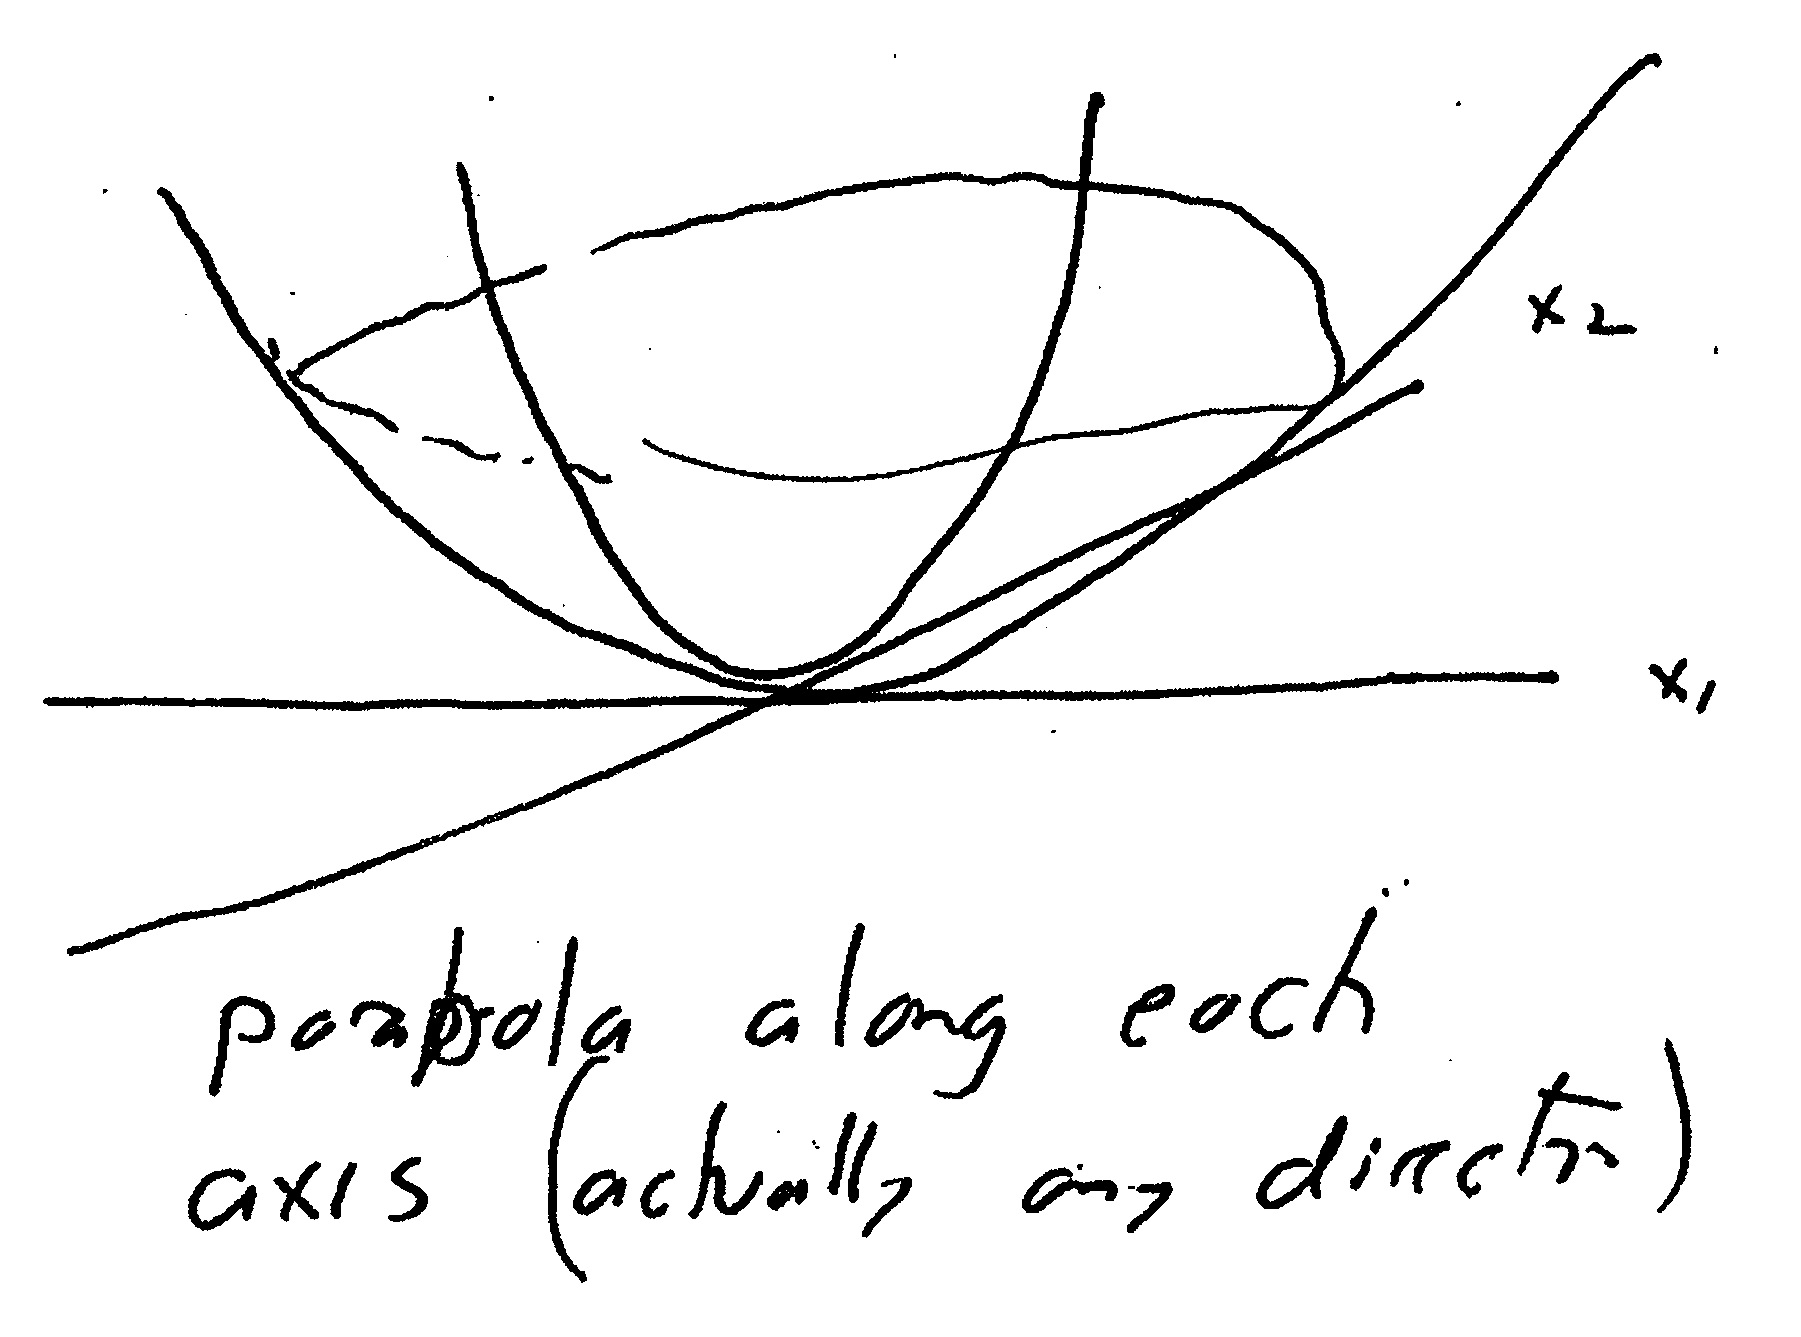 x2
x1
parabola along each
axis (actually any direction)